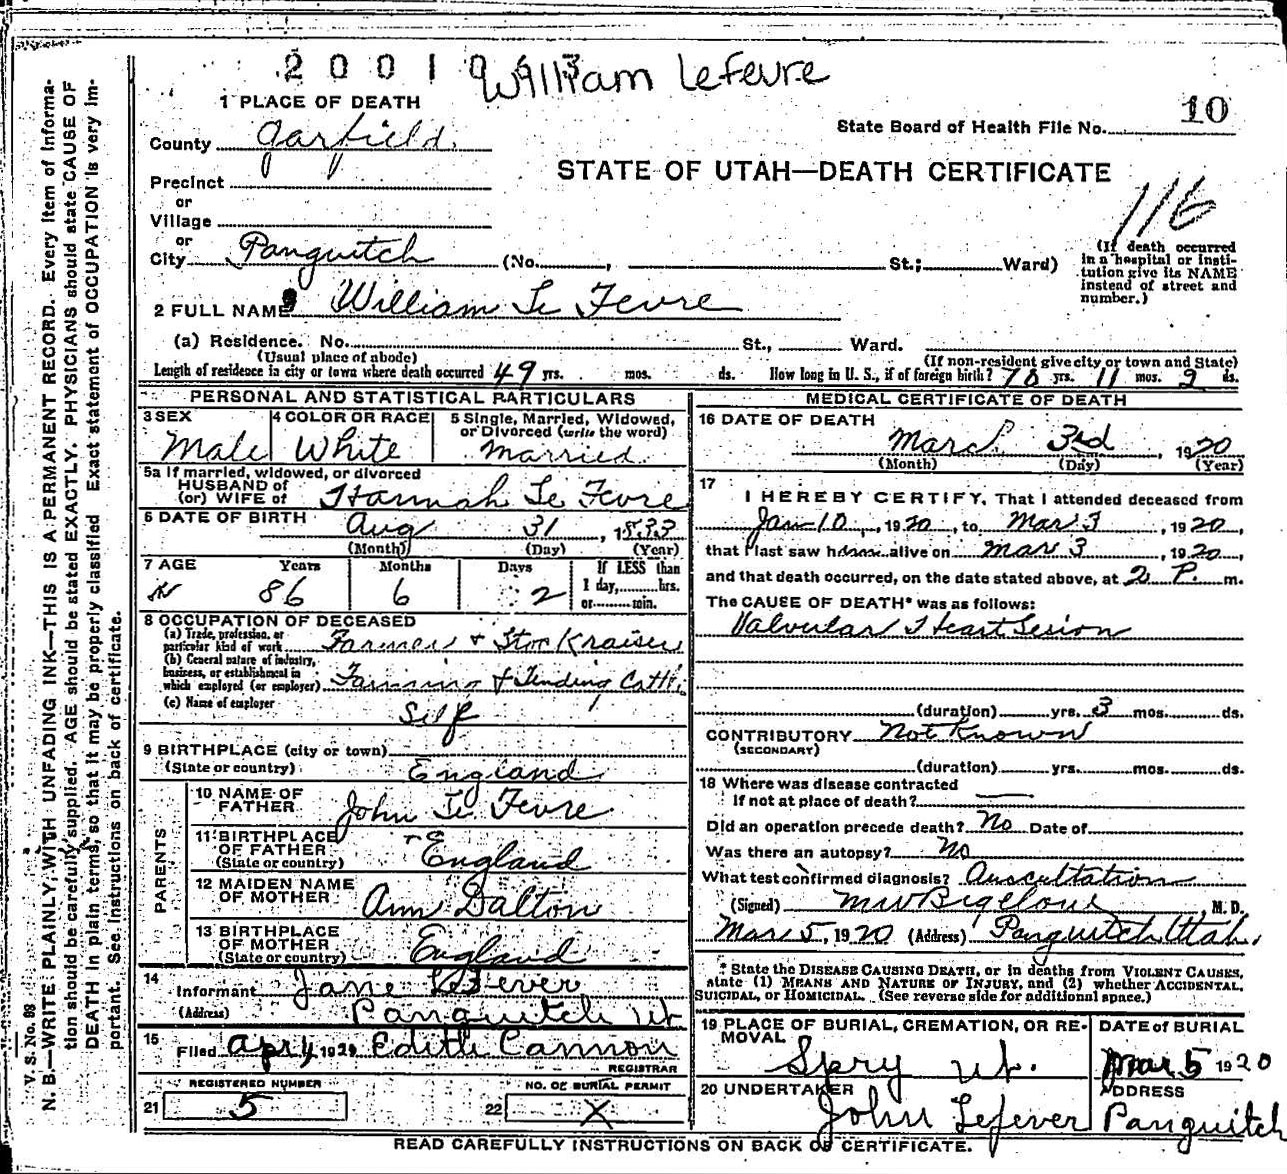 20010
William Lefevre
1 PLACE OF DEATH
10
State Board of Health File No.
County Garfield
STATE OF UTAH—DEATH CERTIFICATE
Precinct
or
116
Village
or
City Panguitch (No. , St.; Ward)
(If death occurred
in a hospital or insti-
tution give its NAME
instead of street and
number.)
2 FULL NAME William Le Fevre
(a) Residence. No. St., Ward.
(Usual place of abode) (If non-resident give city or town and State)
Length of residence in city or town where death occurred 49 yrs. mos. ds. How long in U. S., if of foreign birth? yrs. 11 mos. 2 ds.
PERSONAL AND STATISTICAL PARTICULARS
3 SEX
Male
4 COLOR OR RACE
White
5 Single, Married, Widowed,
or Divorced (write the word)
Married
5a If married, widowed, or divorced
HUSBAND of
(or) WIFE of Hannah Le Fevre
6 DATE OF BIRTH Aug 31, 1833
(Month) (Day) (Year)
7 AGE Years Months Days If LESS than
1 day, hrs.
or min.
86 6 2
8 OCCUPATION OF DECEASED
(a) Trade, profession, or
particular kind of work Farmer + Stock raiser
(b) General nature of industry,
business, or establishment in
which employed (or employer) Farming + Tending Cattle
(c) Name of employer Self
9 BIRTHPLACE (city or town)
(State or country) England
PARENTS
10 NAME OF
FATHER John Le Fevre
11 BIRTHPLACE
OF FATHER
(State or country) England
12 MAIDEN NAME
OF MOTHER Ann Dalton
13 BIRTHPLACE
OF MOTHER
(State or country) England
14
Informant Jane LeFever
(Address) Panguitch Ut
15
Filed 192 Edith Cannon
REGISTRAR
REGISTERED NUMBER
21 5
NO. OF BURIAL PERMIT
22 X
MEDICAL CERTIFICATE OF DEATH
16 DATE OF DEATH
March 3rd, 1920
(Month) (Day) (Year)
17
I HEREBY CERTIFY, That I attended deceased from
Jan 10, 1920, to Mar 3, 1920,
that I last saw him alive on Mar 3, 1920,
and that death occurred, on the date stated above, at 2 P. m.
The CAUSE OF DEATH* was as follows:
Valvular Heart Lesion
(duration) yrs. 3 mos. ds.
CONTRIBUTORY Not Known
(SECONDARY)
(duration) yrs. mos. ds.
18 Where was disease contracted
If not at place of death?
Did an operation precede death? No Date of
Was there an autopsy? No
What test confirmed diagnosis? Auscultation
(Signed) M W Bigelow, M. D.
Mar 5, 1920 (Address) Panguitch Utah.
* State the DISEASE CAUSING DEATH, or in deaths from VIOLENT CAUSES,
state (1) MEANS AND NATURE OF INJURY, and (2) whether ACCIDENTAL,
SUICIDAL, or HOMICIDAL. (See reverse side for additional space.)
19 PLACE OF BURIAL, CREMATION, OR RE-
MOVAL
Spry Ut.
DATE of BURIAL
Mar 5 1920
20 UNDERTAKER
John Lefever
ADDRESS
Panguitch
READ CAREFULLY INSTRUCTIONS ON BACK OF CERTIFICATE.
V. S. No. 98
N. B.—WRITE PLAINLY, WITH UNFADING INK—THIS IS A PERMANENT RECORD. Every item of informa-
tion should be carefully supplied. AGE should be stated EXACTLY. PHYSICIANS should state CAUSE OF
DEATH in plain terms, so that it may be properly classified. Exact statement of OCCUPATION is very im-
portant. See instructions on back of certificate.